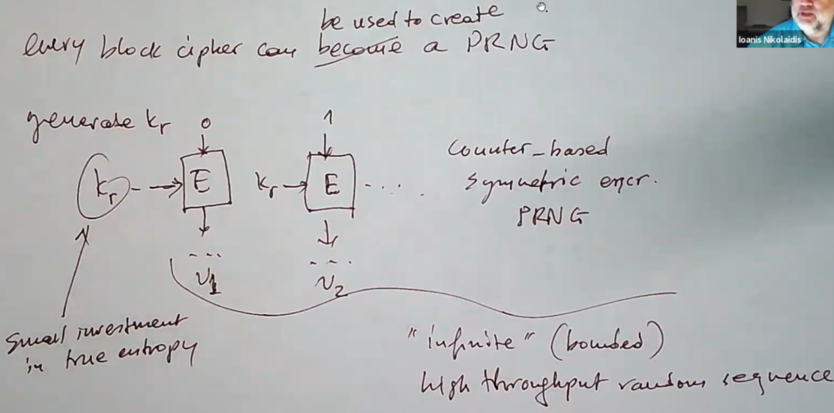 be used to create
every block cipher can become a PRNG
Ioanis Nikolaidis
generate kr 0 1
kr E kr E ....
counter-based
symmetric encr.
PRNG
---
---
υ1 υ2
small investment
in true entropy
"infinite" (bounded)
high throughput random sequence